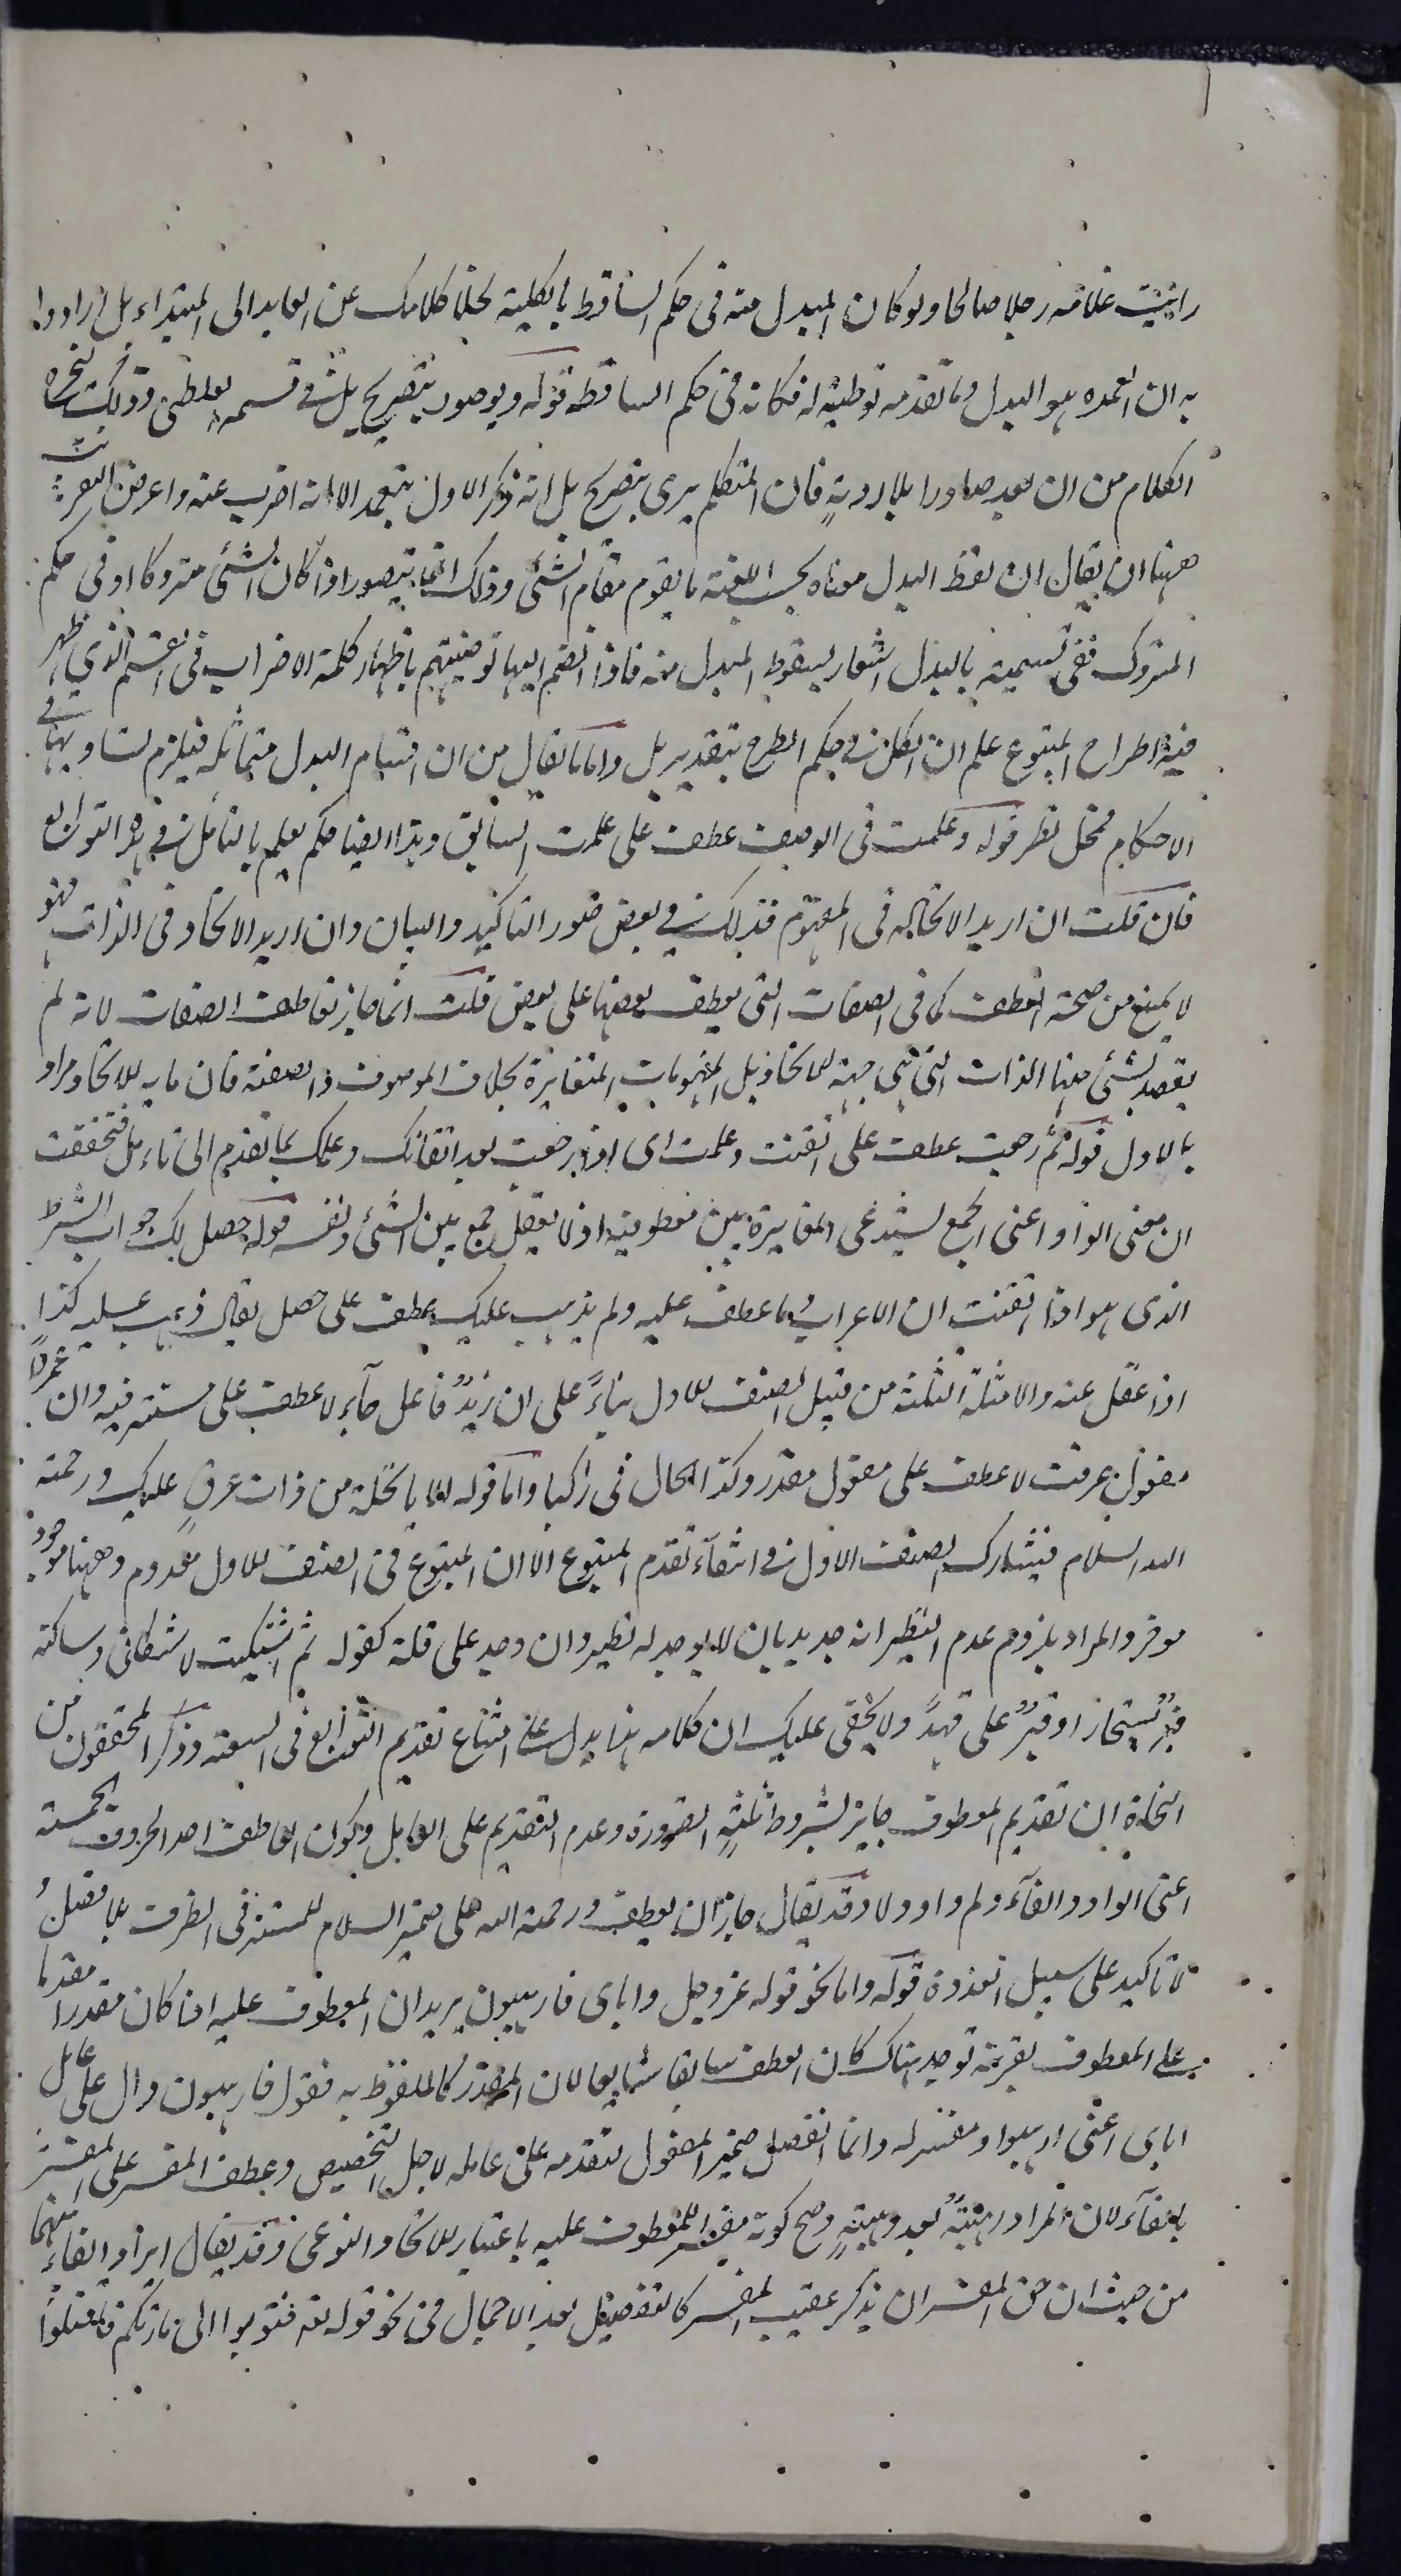 رايت غلامه رجلا صالحا ولو كان المبدل منه فى حكم الساقط بالكلية لخلا كلامك عن العايد الى المبتداء بل ارادوا
به ان العمده هو البدل وما تقدمه توطئة له فكانه فى حكم الساقط قوله ويوصون بتصريح بل فى قسمه الغلطى وذلك ليخرج
الكلام من ان يعد صادرا بلا روية فان المتكلم يرى بتصريح بل انه ذكر الاول بتعمد الا انه اضرب عنه واعرض
ههنا ان يقال ان لفظ البدل معناه بحسب اللغة ما يقوم مقام الشئ وذلك انما يتصور اذا كان الشئ متروكا او فى حكم
المتروك ففى تسميته بالبدل اشعار بسقوط المبدل منه فاذا انضم اليها توصيتهم باظهار كلمة الاضراب فى القسم الذي ظهر
فيه اطراح المتبوع علم ان الكل فى حكم المطرح بتقدير بل واما ما يقال من ان اقسام البدل متماثلة فيلزم تساويها فى
الاحكام فمحل نظر قوله وعلمت فى الوصف عطف على علمت السابق وهذا ايضا حكم يعلم بالتامل فى هذه التوابع
فان قلت ان اريد الاتحاد فى المفهوم فذلك فى بعض صور التاكيد والبيان وان اريد الاتحاد فى الذات فهو
لا يمنع من صحة العطف كما فى الصفات التى يعطف بعضها على بعض قلت انما جاز تعاطف الصفات لانه لم
يقصد بشئ منها الذات التى هى جهة الاتحاد بل المفهومات المتغايرة بخلاف الموصوف والصفة فان ما به الاتحاد مراد
بالاول قوله ثم رجعت عطف على اتقنت وعلمت اى اذا رجعت بعد اتقانك وعلمك بما تقدم الى تامل فتحققت
ان معنى الواو اعنى الجمع يستدعى المغايرة بين معطوفيه اذ لا يعقل جمع بين الشئ ونفسه قوله حصل لك جواب الشرط
الذى هو اذا اتقنت ان الاعراب وما عطف عليه ولم يذهب عليك عطف على حصل يقال ذهب عليه كذا
اذا غفل عنه والامثلة الثلثة من قبيل الصنف الاول بناءً على ان زيدٌ فاعل جآء لا عطف على مستتر فيه وان عمرًا
مفعول عرفت لا عطف على مفعول مقدر وكذا الحال فى راكبا واما قوله الا يا نخلة من ذات عرقٍ عليك ورحمة
الله السلام فيشارك الصنف الاول فى انتفآء تقدم المتبوع الا ان المتبوع فى الصنف الاول معدوم وههنا موجود
موخر والمراد بلزوم عدم النظير انه جدير بان لا يوجد له نظير وان وجد على قلة كقوله ثم اشتكيت لاشكانى وساكنه
قبرٌ بسنجار او قبرٌ على قهدٍ ولا يخفى عليك ان كلامه هذا يدل على امتناع تقديم التوابع فى السعة وذكر المحققون من
النحاة ان تقديم المعطوف جايز بشروط ثلثةٍ الضرورة وعدم التقديم على العامل وكون العاطف احد الحروف الخمسة
اعنى الواو والفآء وثم واو ولا وقد يقال جاز ان يعطف ورحمة الله على ضمير السلام المستتر فى الظرف بلا فصل
لا تاكيد على سبيل الندرة قوله واما نحو قوله عز وجل واياى فارهبون يريد ان المعطوف عليه اذا كان مقدرا مقدما
على المعطوف بقرينة توجد هناك كان العطف سابقا شايعا لان المقدر كالملفوظ به فقوله فارهبون دال على عامل
اياى اعنى ارهبوا ومفسر له وانما انفصل ضمير المفعول لتقدمه على عامله لاجل التخصيص وعطف المفسر على المفسر
بالفآء لان المراد رهبةً بعد رهبةٍ وصح كونه مفسرا للمعطوف عليه باعتبار الاتحاد النوعى وقد يقال ايراد الفآء بينهما
من حيث ان حق المفسر ان يذكر عقيب المفسر كالتفصيل بعد الاجمال فى نحو قوله تعه فتوبوا الى بارئكم فاقتلوا